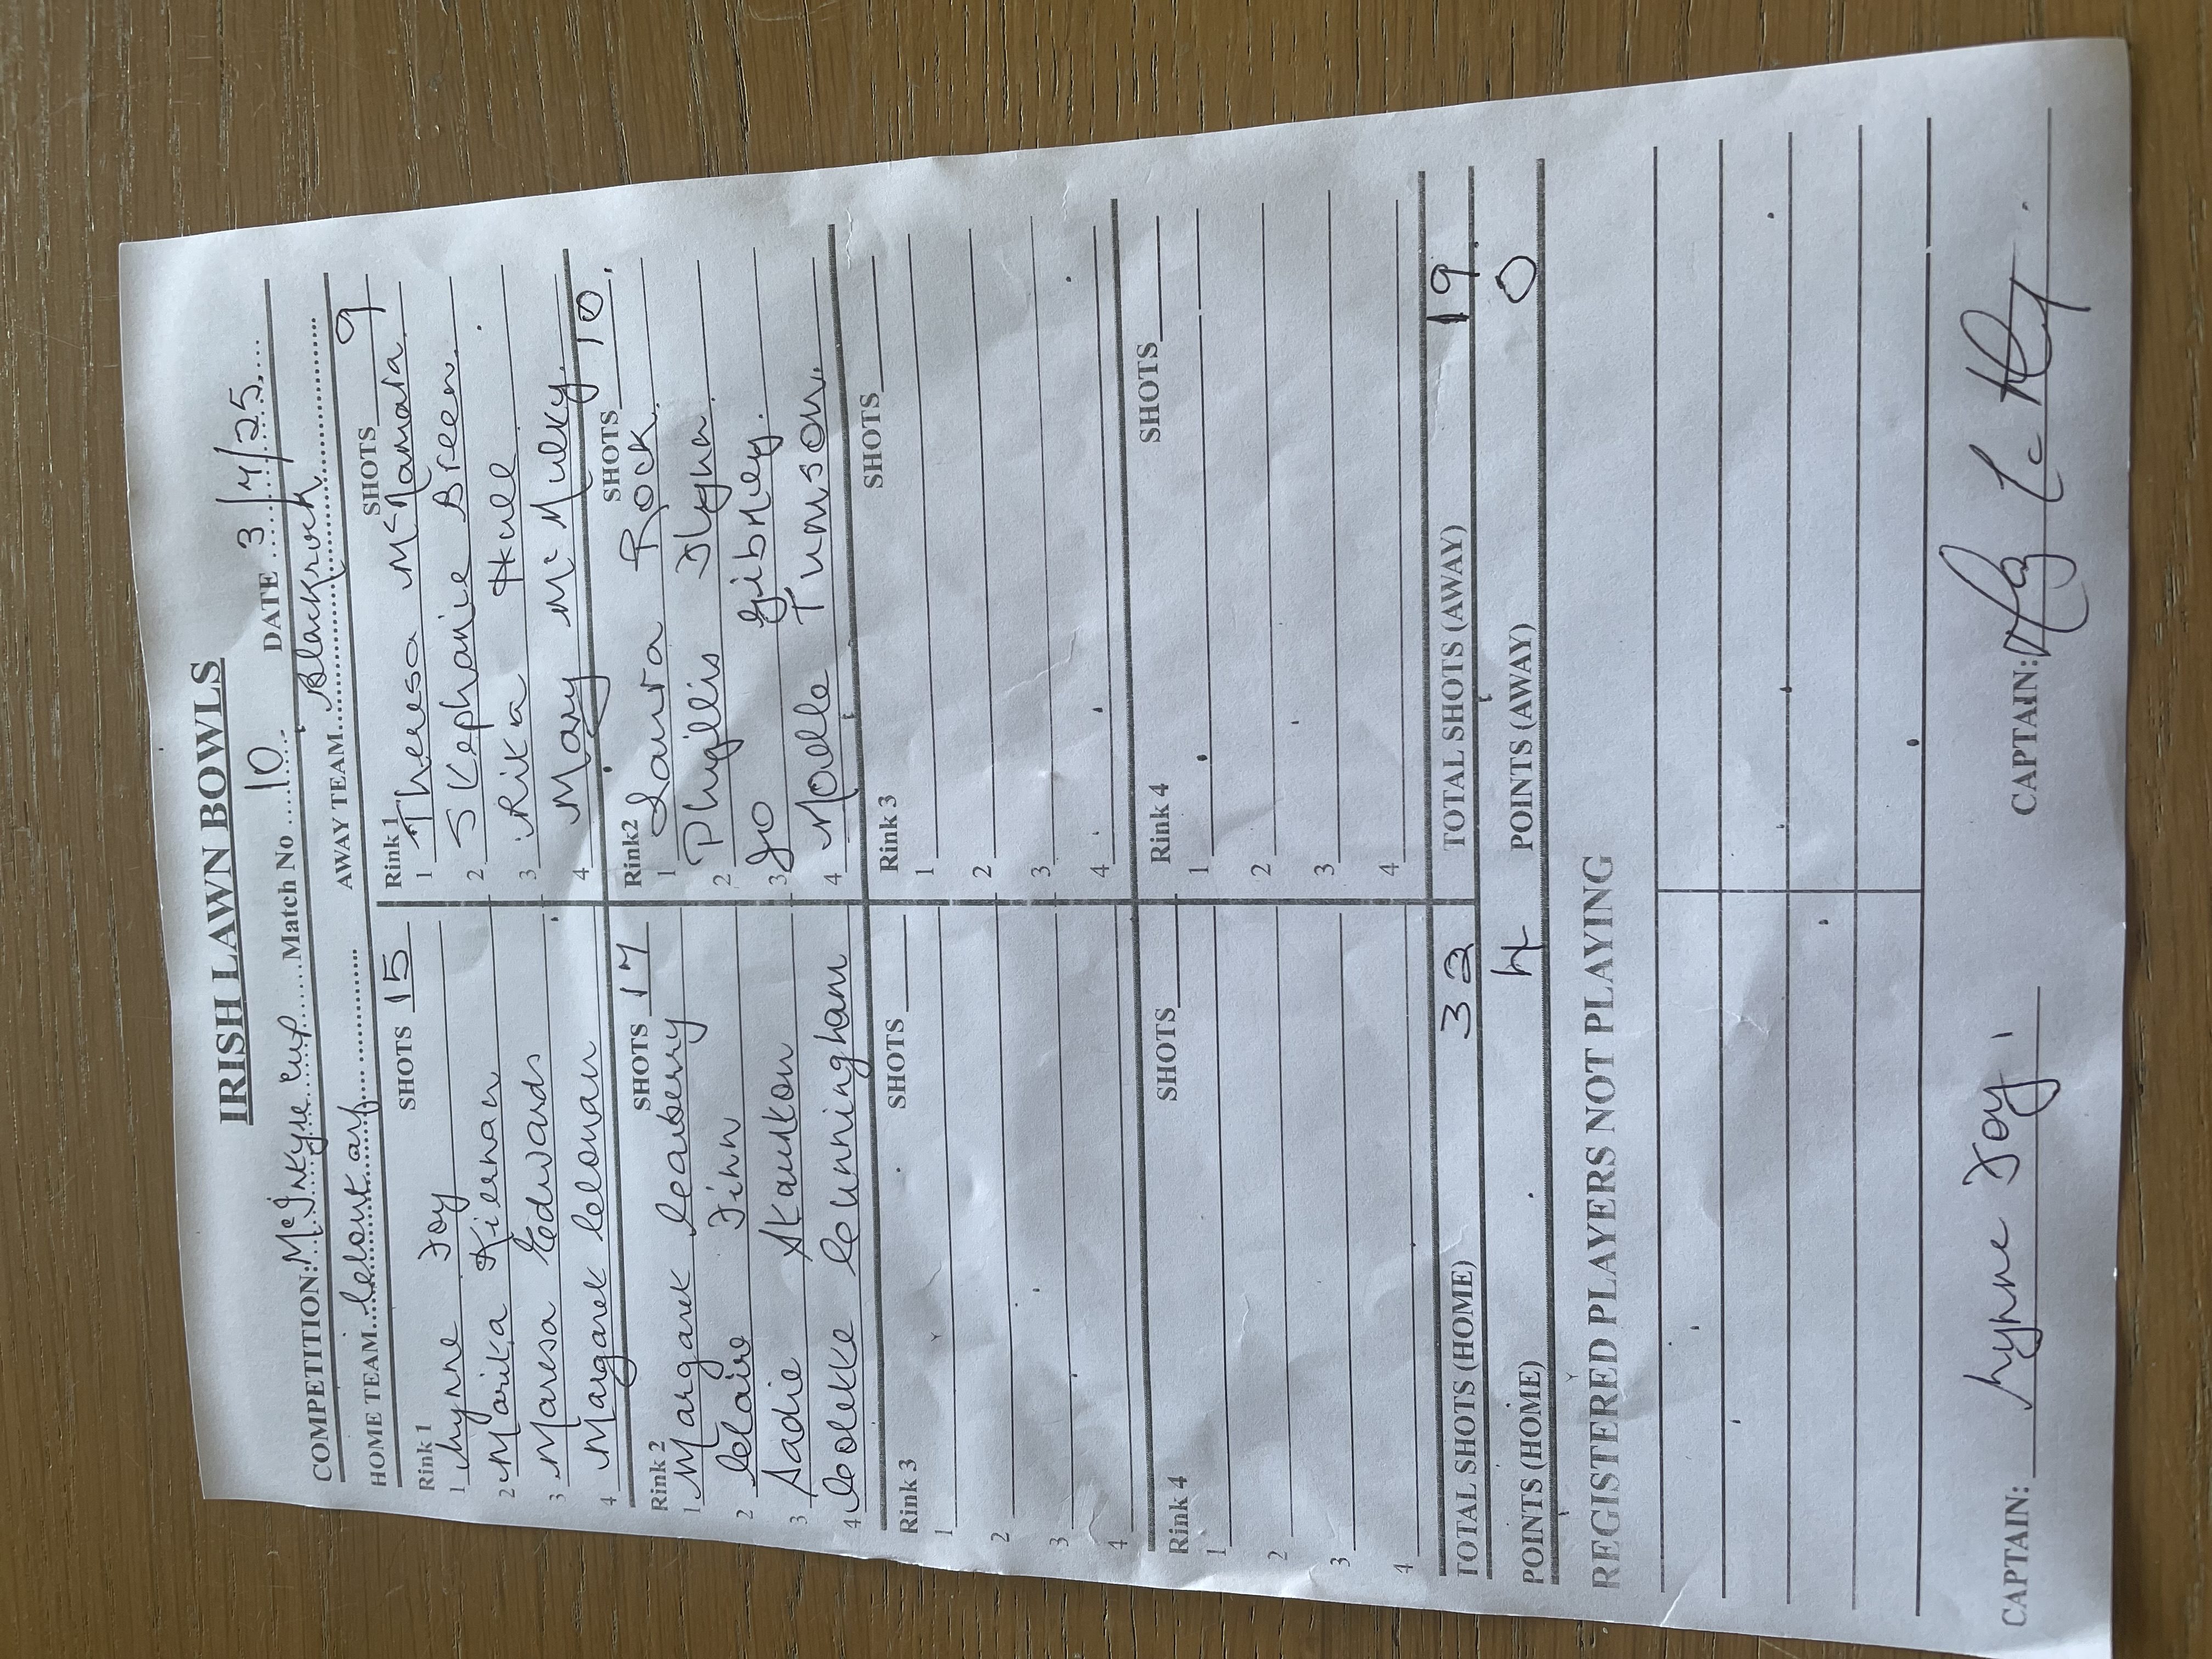 IRISH LAWN BOWLS
COMPETITION: McIntyre Cup Match No 10 DATE 3/7/25
HOME TEAM Clontarf AWAY TEAM Blackrock
Rink 1 SHOTS 15
1 Lynne Joy
2 Marika Kiernan
3 Maresa Edwards
4 Margaret Clonan
Rink 2 SHOTS 17
1 Margaret Carberry
2 Claire Finn
3 Sadie Staunton
4 Colette Cunningham
Rink 3 SHOTS
1
2
3
4
Rink 4 SHOTS
1
2
3
4
Rink 1 SHOTS 9
1 Theresa McNamara
2 Stephanie Breen
3 Rika Hull
4 Mary McNulty
Rink2 SHOTS 10
1 Laura Rock
2 Phyllis Flynn
3 Jo Gibney
4 Noelle Tunson
Rink 3 SHOTS
1
2
3
4
Rink 4 SHOTS
1
2
3
4
TOTAL SHOTS (HOME) 32 TOTAL SHOTS (AWAY) 19
POINTS (HOME) 4 POINTS (AWAY) 0
REGISTERED PLAYERS NOT PLAYING
CAPTAIN: Lynne Joy CAPTAIN: